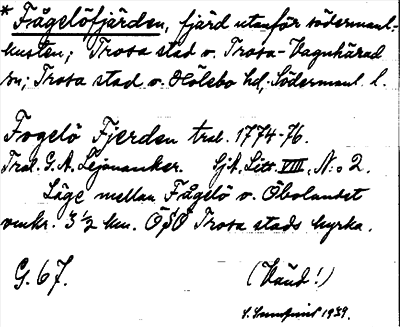 * Fågelöfjärden, fjärd utanför södermanl.-
kusten; Trosa stad o. Trosa-Vagnhärad
sn; Trosa stad o. Hölebo hd; Södermanl. l.
Fogelö Fjerden tral. 1774-76.
Tral. G. A. Lejonanker. Sjk. Litt. VIII, N:o 2.
Läge mellan Fågelö o. Öbolandet
omkr. 3 ½ km. ÖSÖ Trosa stads kyrka.
G. 67.
(Vänd!)
S. Sundquist 1939.